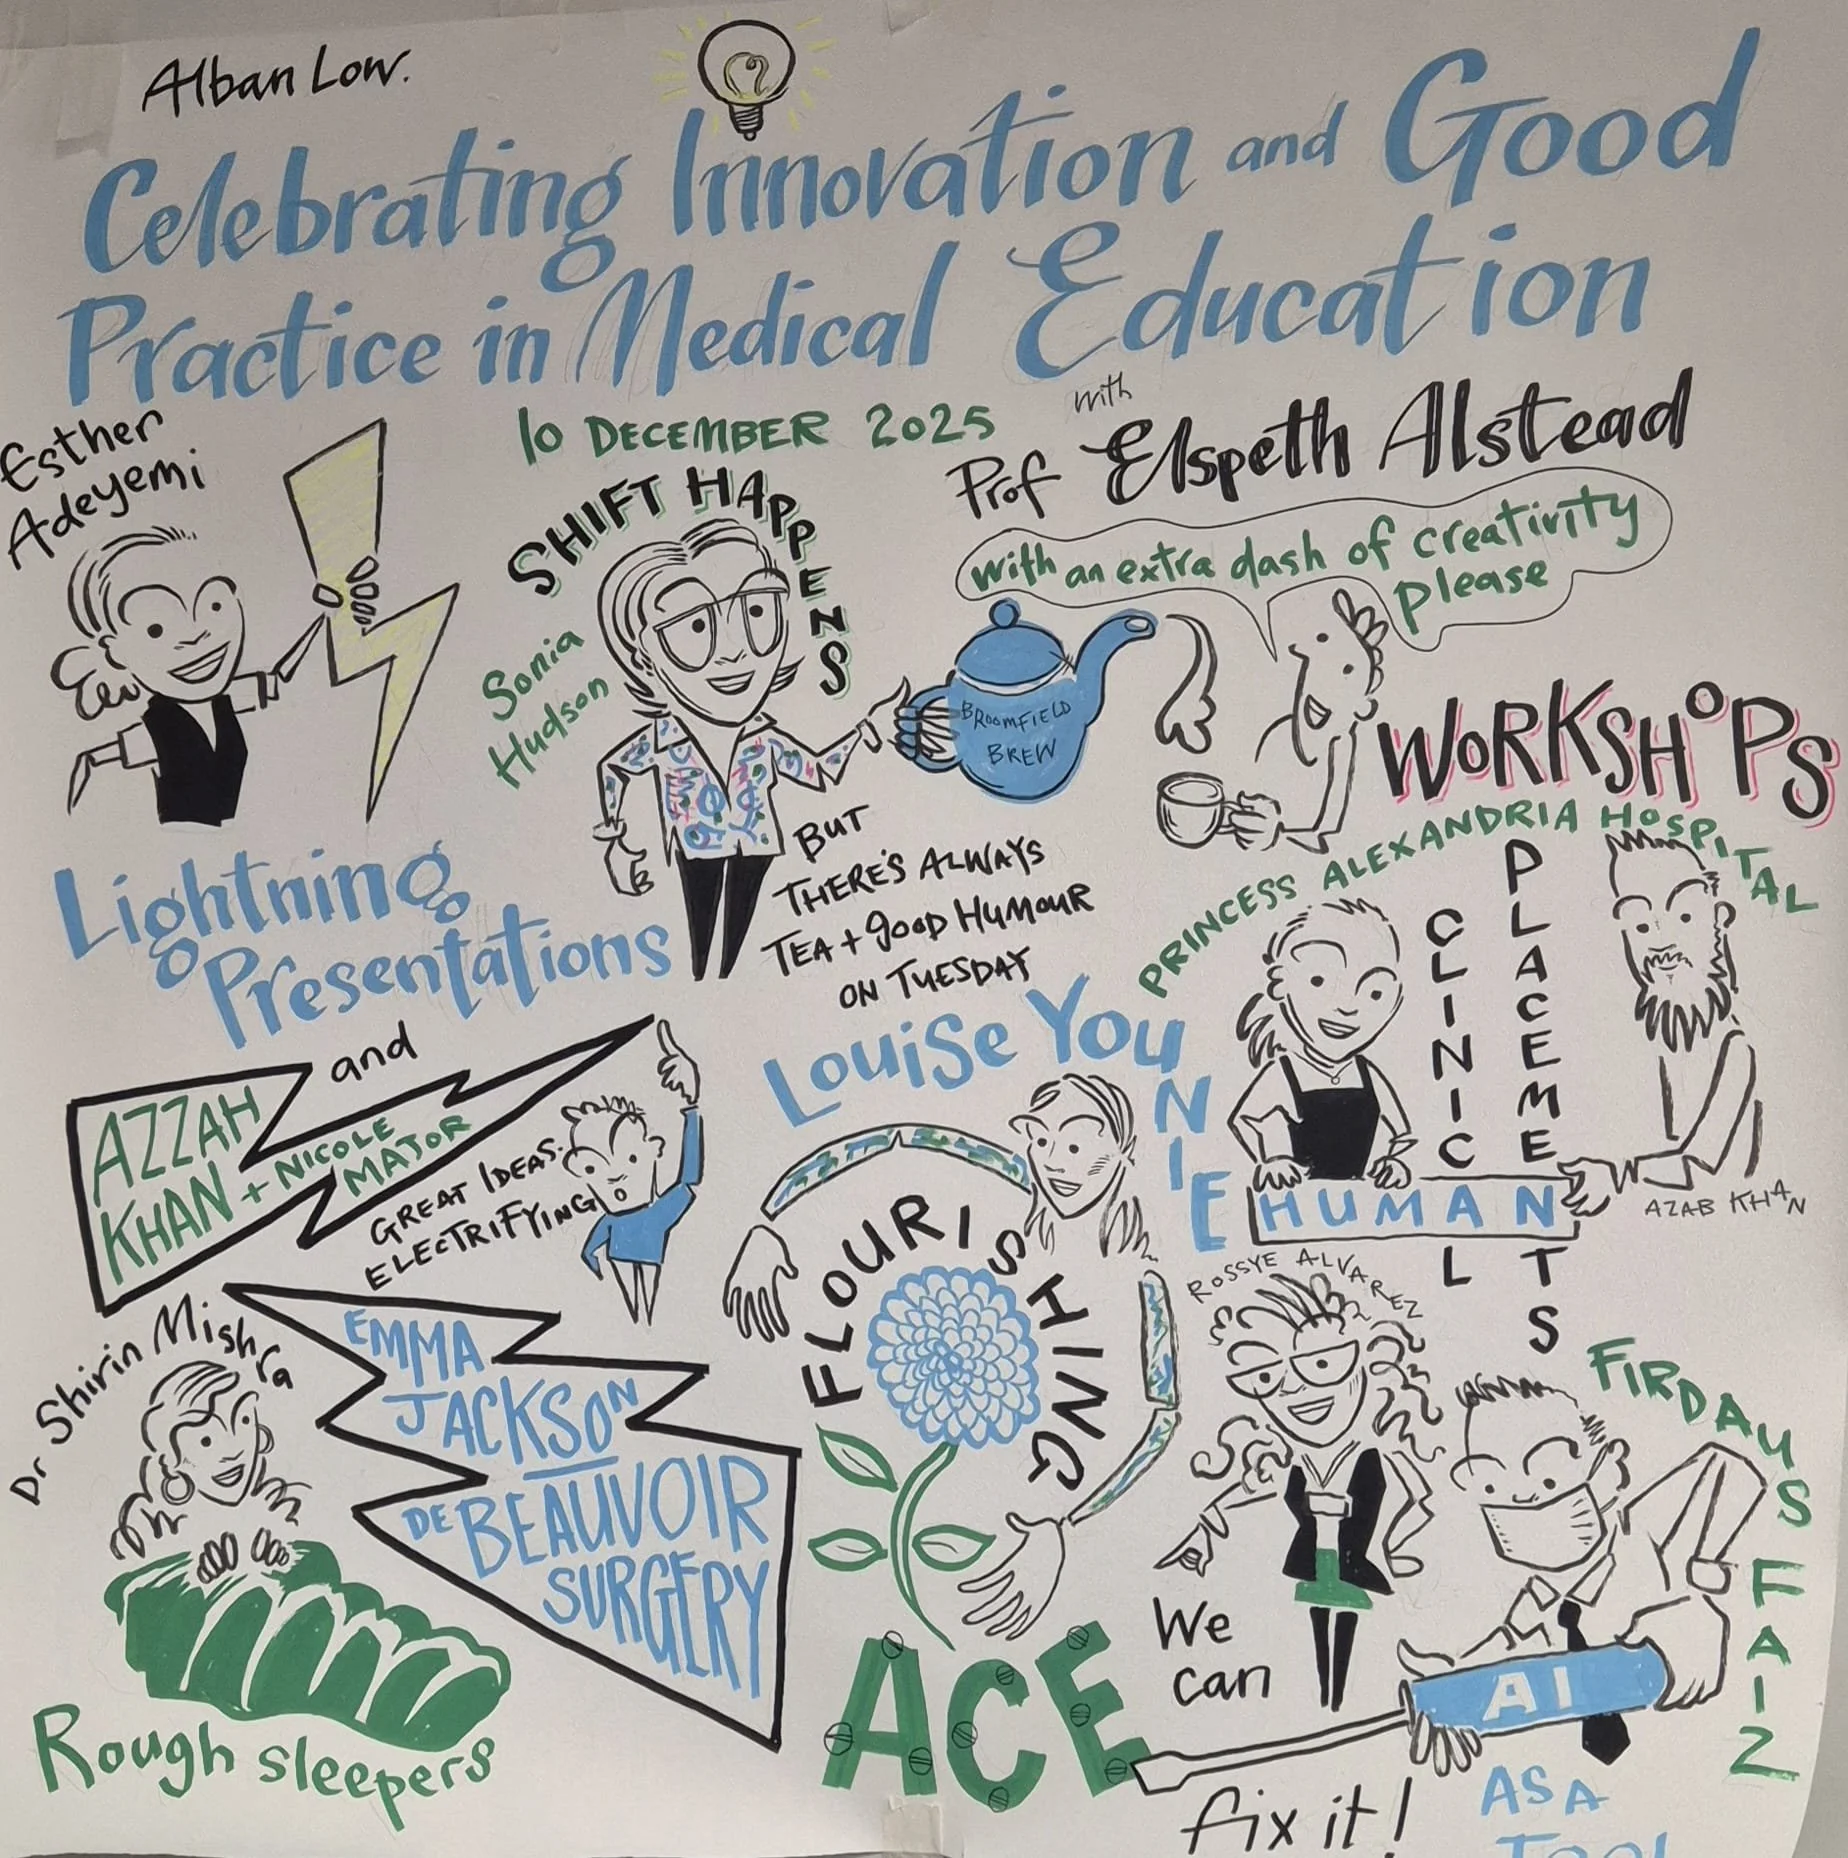 Alban Low.
Celebrating Innovation and Good
Practice in Medical Education
10 DECEMBER 2025
with
Prof Elspeth Alstead
Esther
Adeyemi
SHIFT HAPPENS
Sonia
Hudson
with an extra dash of creativity
please
BROOMFIELD
BREW
BUT
THERE'S ALWAYS
TEA + good HUMOUR
ON TUESDAY
WORKSHOPS
PRINCESS ALEXANDRIA HOSPITAL
CLINICAL
PLACEMENTS
HUMAN
AZAB KHAN
Lightning
Presentations
and
AZZAH
KHAN + NICOLE
MAJOR
GREAT IDEAS.
ELECTRIFYING
LOUISE YOUNIE
FLOURISHING
ROSSYE ALVAREZ
Dr Shirin Mishra
EMMA
JACKSON
DE BEAUVOIR
SURGERY
Rough sleepers
ACE
We
can
fix it!
FIRDAUS FAIZ
AI
AS A
TOOL